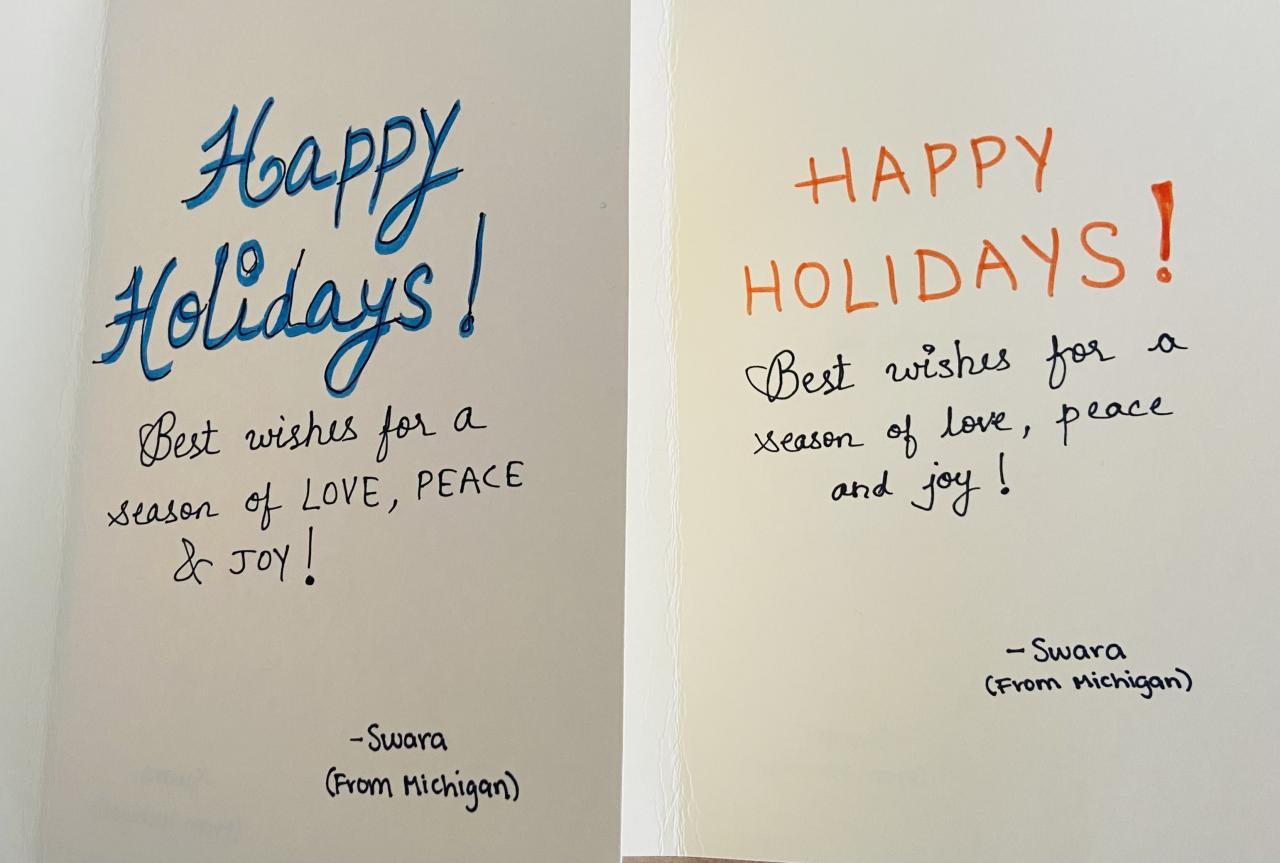 Happy
Holidays!
Best wishes for a
season of LOVE, PEACE
& JOY!
-Swara
(From Michigan)
HAPPY
HOLIDAYS!
Best wishes for a
season of love, peace
and joy!
-Swara
(From Michigan)